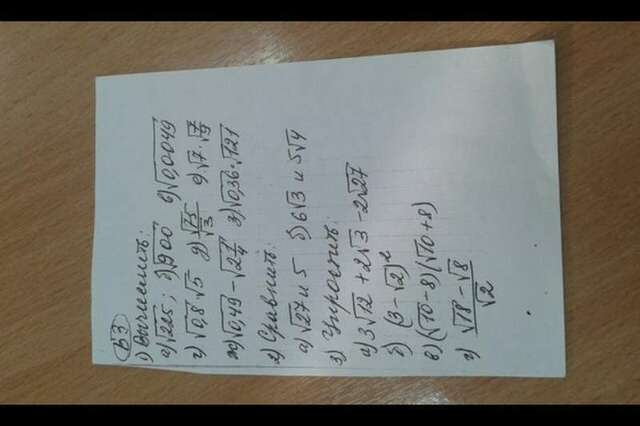 В3
1) Вычислить:
а) √225; б) √900 в) √0,0049
г) √0,8·√5 д) √75/√3 е) √7·√
ж) √0,49 - √2 з) √0,36·√121
2) Сравнить:
а) √27 и 5 б) 6√3 и 5√4
3) Упростить:
а) 3√12 + 2√3 - 2√27
б) (3-√2)²
в) (√10-8)(√10+8)
г) (√18-√8)/√2